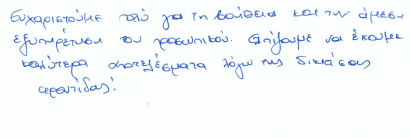 Ευχαριστούμε πολύ για τη βοήθεια και την άμεση
εξυπηρέτηση του προσωπικού. Ελπίζουμε να έχουμε
καλύτερα αποτελέσματα λόγω της δικιάσας
φροντίδας!